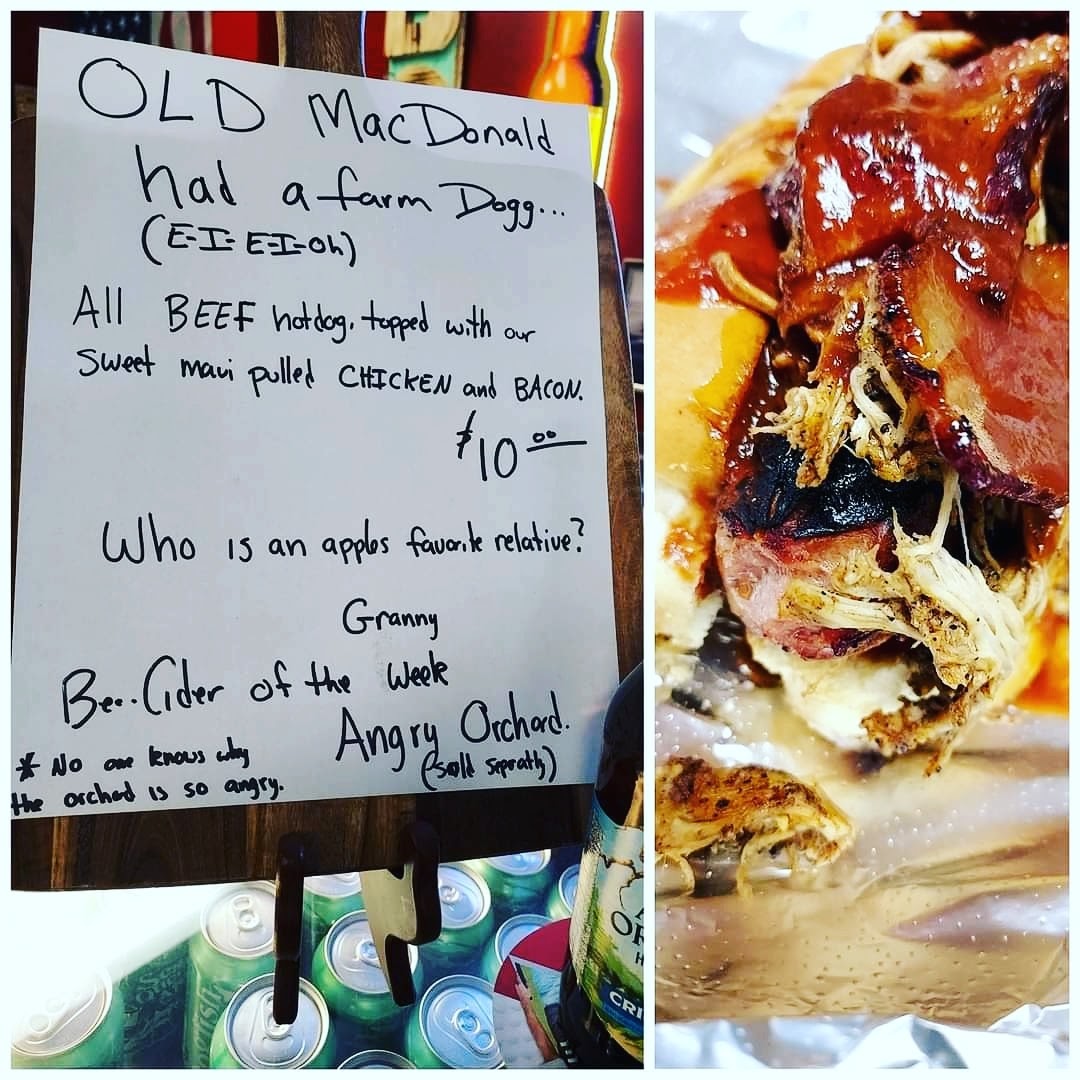 OLD MacDonald
had a farm Dogg...
(E-I-E-I-Oh)
All BEEF hotdog, topped with our
sweet maui pulled CHICKEN and BACON.
$10.00
Who is an apples favorite relative?
Granny
Bee..Cider of the Week
Angry Orchard.
(sold sepratly)
* No one knows why
the orchard is so angry.
OR
CRI